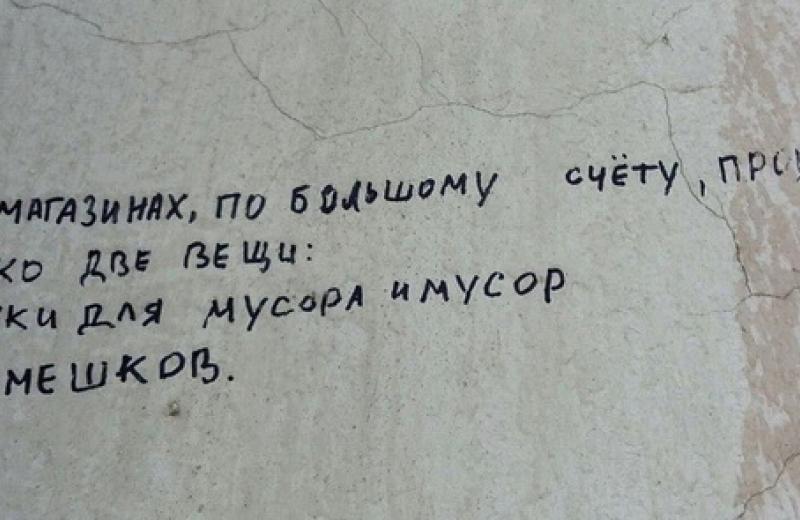 МАГАЗИНАХ, ПО БОЛЬШОМУ СЧЁТУ, ПРО
КО ДВЕ ВЕЩИ:
КИ ДЛЯ МУСОРА И МУСОР
МЕШКОВ.